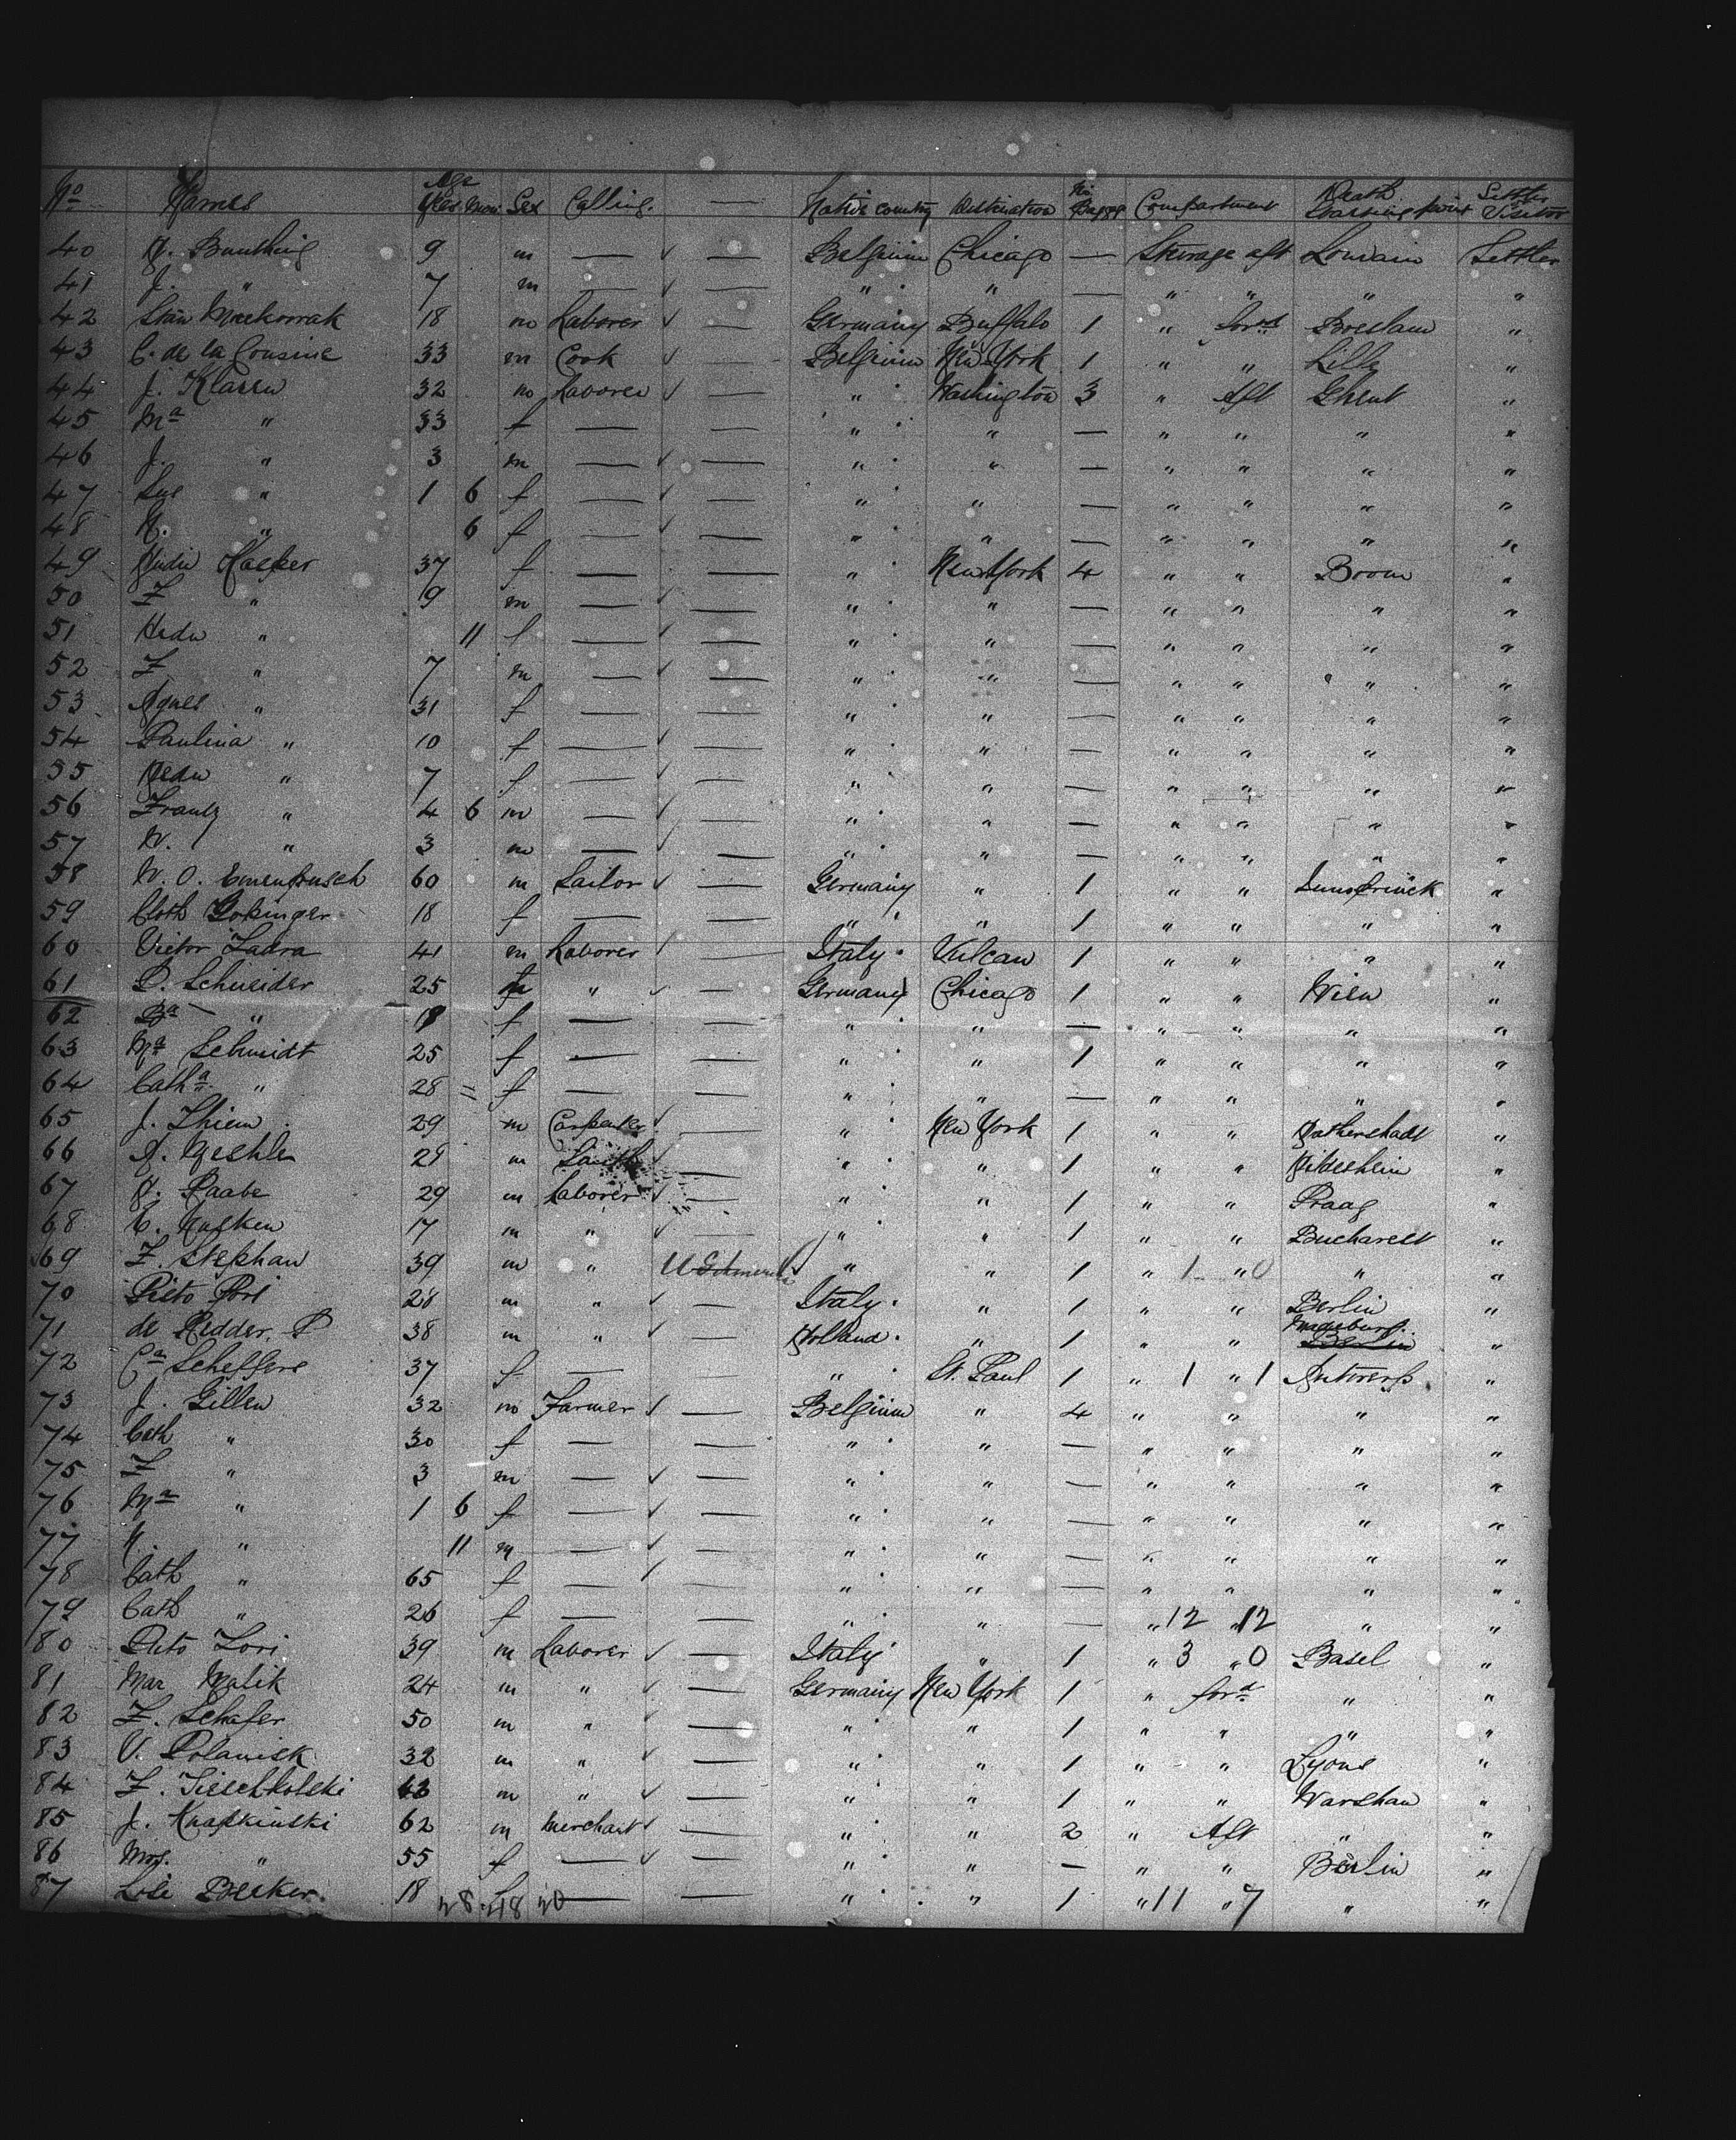 No Names Age Yrs. Mon. Sex Calling. — Native country Destination No Bagg Compartment Death Starting point Settler Visitor
40 9 m — ✓ — Belgium Chicago — Sterage aft Louvain Settler
41 J. " 7 m — ✓ — " " — " " " "
42 Stan 18 m Laborer ✓ — Germany Buffalo 1 " ford Breslau "
43 C. de la Cousine 33 m Cook ✓ — Belgium New York 1 " " Lille "
44 J. Klaren 32 m Laborer ✓ — " Washington 3 " Aft Ghent "
45 Ma " 33 f — — " " — " " " "
46 J. " 3 m — ✓ — " " — " " " "
47 " 1 6 f — ✓ — " " — " " " "
48 " 6 f — ✓ — " " — " " " "
49 37 f — — " New York 4 " " Boom "
50 F " 9 m — ✓ — " " — " " " "
51 Hedw " 11 f — ✓ — " " — " " " "
52 F " 7 m — ✓ — " " — " " " "
53 Agnes " 31 f — — " " — " " " "
54 Paulina " 10 f — ✓ — " " — " " " "
55 Hedw " 7 f — ✓ — " " — " " " "
56 Frantz " 4 6 m — ✓ — " " — " " " "
57 W. " 3 m — ✓ — " " — " " " "
58 W. O. 60 m Sailor ✓ — Germany " 1 " " "
59 Cloth 18 f — — " " 1 " " " "
60 Victor Zadra 41 m Laborer ✓ — Italy Vulcan 1 " " " "
61 Schneider 25 " ✓ — Germany Chicago 1 " " Wien "
62 Ba " f — — " " — " " " "
63 Ma Schmidt 25 f — — " " 1 " " " "
64 Catha " 28 = f — — " " — " " " "
65 J. Thiem 29 m Carpenter ✓ — " New York 1 " " "
66 m Smith ✓ — " " 1 " " Hildesheim "
67 Raabe 29 m Laborer ✓ — " " 1 " " Praag "
68 17 m " ✓ — " " 1 " " Bucharest "
69 F. Stephan 39 m " ✓ " " 1 " 1 " 0 " "
70 Pieto Pori 28 m " ✓ — Italy " 1 " " Berlin "
71 de Redder. P 38 m " ✓ — Holland " 1 " " Magdeburg "
72 Ca Scheffers 37 f — — " St. Paul 1 " 1 " 1 Antwerp "
73 J. Gillen 32 m Farmer ✓ — Belgium " 4 " " " "
74 Cath " 30 f — — " " — " " " "
75 F " 3 m — ✓ — " " — " " " "
76 Ma " 1 6 f — ✓ — " " — " " " "
77 " 11 m — ✓ — " " — " " " "
78 Cath " 65 f — ✓ — " " — " " " "
79 Cath " 26 f — — " " — " 12 " 12 " "
80 Pieto Zori 39 m Laborer ✓ — Italy " 1 " 3 " 0 Basel "
81 Mar Malik 24 m " ✓ — Germany New York 1 " ford " "
82 F. Schafer 50 m " ✓ — " " 1 " " " "
83 V. Polanisk 32 m " ✓ — " " 1 " " Lyons "
84 F. m " ✓ — " " 1 " " Warshau "
85 J. 62 m Merchant ✓ — " " 2 " Aft " "
86 Mrs. " 55 f — ✓ — " " — " " Berlin "
87 Becker 18 f — — " " 1 " 11 " 7 " "